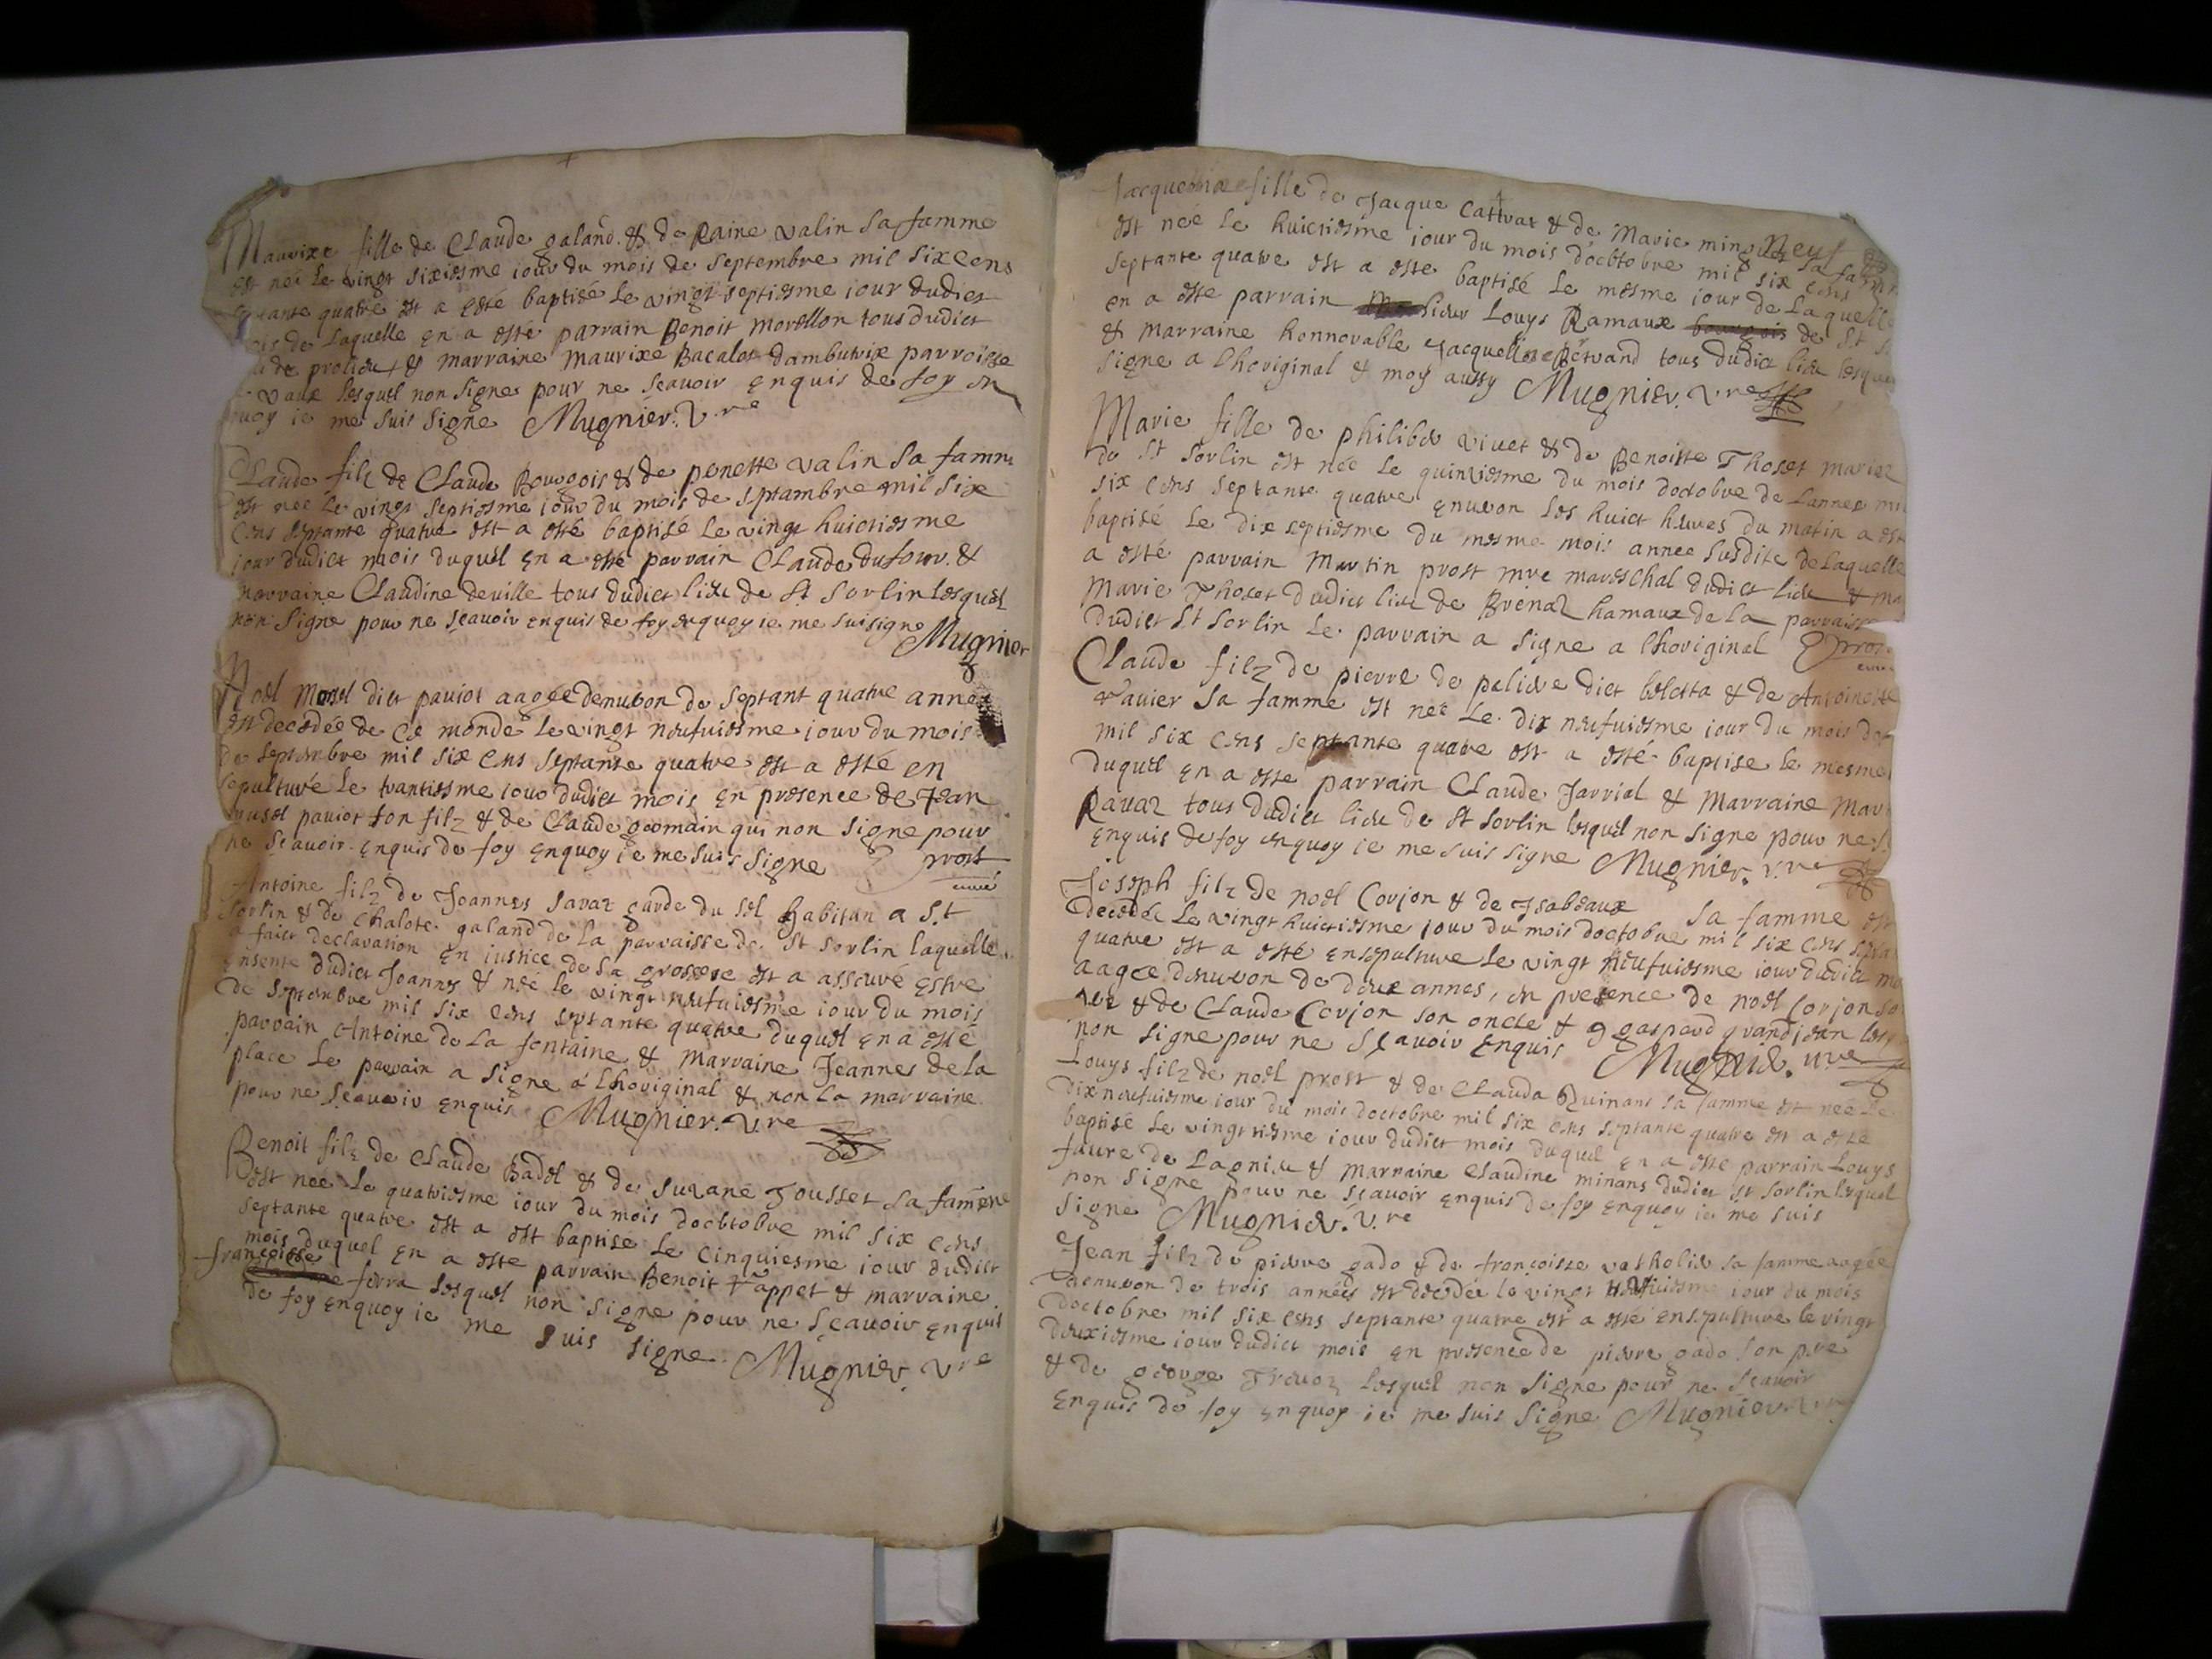 Maurixe fille de Claude galand & de Raine valin sa famme
est née le vingt sixiesme iour du mois de septembre mil six cens
septante quatre est a esté baptisé le vingt septiesme iour dudict
mois de laquelle en a esté parrain Benoit morellon tous dudict
de prolieu & marraine maurixe Bacalot dambutrix parroisse
vaux lesquel non signes pour ne scavoir enquis de foy en
quoy ie me suis signe Mugnier. v.re
Claude filz de Claude Bourgois & de penette valin sa famme
est née le vingt septiesme iour du mois de septambre mil six
cens septante quatre est a esté baptisé le vingt huictiesme
iour dudict mois duquel en a esté parvain Claude dufour &
marvaine Claudine deville tous dudict lieu de St Sorlin lesquel
non signe pour ne scavoir enquis de foy enquoy ie me suisigne Mugnier
Noel Morel dict paviot aagée denviron de septant quatre annes
est decedée de ce monde le vingt neufuiesme iour du mois
de septembre mil six cens septante quatre est a esté en
sepulturé le trantiesme iour dudict mois en presence de Jean
paviot son filz & de Claude germain qui non signe pour
ne scavoir enquis de foy enquoy ie me suis signe prost
curé
Antoine filz de Joannes savaz garde du sel habitan a S.t
Sorlin & de Chalote galand de la parvaisse de St Sorlin laquelle
a faict declaration en iustice de sa grossese est a asseuré estre
ensente dudict Joannes & née le vingt neufuiesme iour du mois
de septembre mil six cens septante quatre duquel en a esté
parvain Antoine de la fontaine & marvaine Jeannes de la
place le parvain a signe a lhoriginal & non la marvaine
pour ne scavoir enquis Mugnier. v.re
Benoit filz de Claude Badel & de Suzane Tousset sa famene
est née le quatriesme iour du mois docbtobre mil six cens
septante quatre est a est baptise le cinquiesme iour dudict
mois duquel en a este parvain Benoit Tappet & marvaine
françoisse ferra lesquel non signe pour ne scavoir enquis
de foy enquoy ie me suis signe. Mugnier. vre
Jacquemine fille de Jacque Cattvat & de Marie Mingneyf sa famme
est née le huictiesme iour du mois docbtobre mil six cens
septante quatre est a este baptisé le mesme iour de laquelle
en a este parvain sieur Louys Ramaux de S.t
& marraine honnorable Jacqueline Bervand tous dudict lieu lesquel
signe a lhoriginal & moy aussy Mugnier. v.re
Marie fille de philiber vivet & de Benoitte Thoset mariez
de St Sorlin est née le quinziesme du mois doctobre de lannee mil
six cens septante quatre enuiron les huict heures du matin a est
baptisé le dix septiesme du mesme mois annee susdite de laquelle
a esté parvain Martin prost mre mareschal dudict lieu & ma
Marie Thoset dudict lieu de Brenaz hamaux de la parvaisse
dudict St Sorlin le parvain a signe a lhoriginal prost
curé
Claude filz de pierre de pelieve dict beletta & de Antoinette
ravier sa famme est née le dix neufuiesme iour du mois do
mil six cens septante quatre est a esté baptise le mesme
duquel en a esté parrain Claude Jarrial & Marvaine Mar
Ravaz tous dudict lieu de St Sorlin lesquel non signe pour ne s
enquis de foy enquoy ie me suis signe Mugnier. v.re
Joseph filz de noel Corjon & de Isabeaux sa famme est
decedée le vingt huictiesme iour du mois doctobre mil six cens septan
quatre est a esté ensepulture le vingt neufuiesme iour dudict mo
aagee denviron de deux annes, en presence de noel Corjon so
& de Claude Corjon son oncle & gaspard grandjean lesq
non signe pour ne scavoir enquis Mugnier. v.re
Louys filz de noel prost & de Clauda Quinans sa famme est née le
dixneufuiesme iour du mois doctobre mil six cens septante quatre est a este
baptisé le vingttiesme iour dudict mois duquel en a este parrain Louys
favre de Lagnieu & marraine Claudine minans dudict St Sorlin lesquel
non signe pour ne scavoir enquis de foy enquoy ie me suis
signe Mugnier. v.re
Jean filz de pierre gado & de françoisse vatholier sa famme aagée
denuiron de trois années est decedée le vingt iour du mois
doctobre mil six cens septante quatre est a esté ensepulture le vingt
deuxiesme iour dudict mois en presence de pierre gado son pere
& de george Trevoz lesquel non signe pour ne scavoir
enquis de foy enquoy ie me suis signe Mugnier v.re